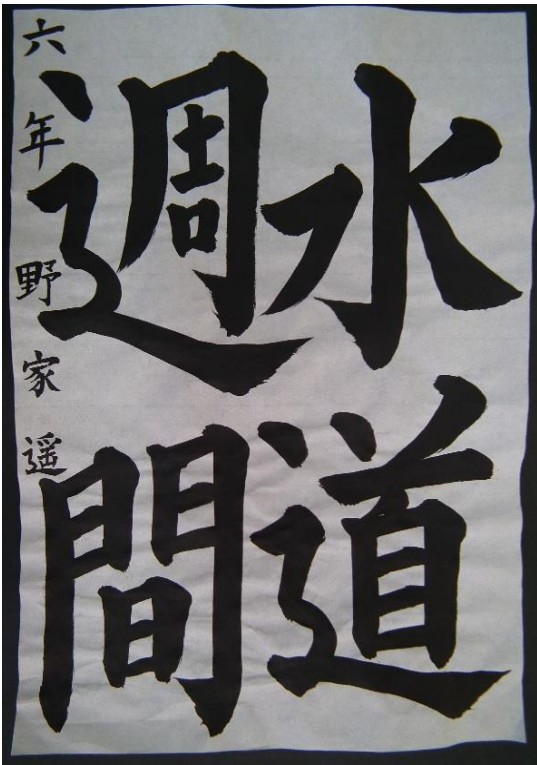 水道
週間
六年 野家遥